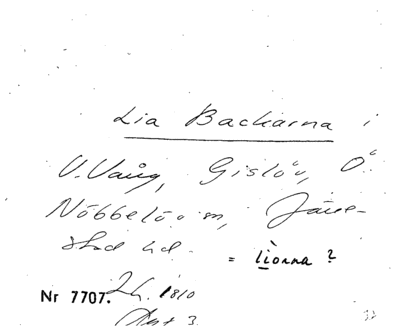 Lia Backarna i
V. Vång, Gislöv, Ö.
Nöbbelöv m, Järre-
stad hd.
= lionna ?
Nr 7707. 1810